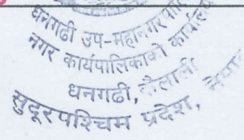 धनगढी उप-महानगरपा
नगर कार्यपालिकाको कार्यालय
धनगढी, कैलाली
सुदूरपश्चिम प्रदेश, नेपाल